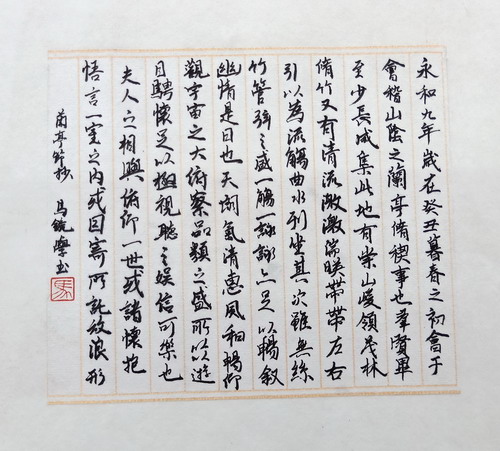 永和九年歲在癸丑暮春之初會于
會稽山陰之蘭亭脩稧事也羣賢畢
至少長咸集此地有崇山峻領茂林
脩竹又有清流激激湍暎帶帶左右
引以為流觴曲水列坐其次雖無絲
竹管弦之盛一觴一詠詠亦足以暢叙
幽情是日也天朗氣清惠風和暢仰
觀宇宙之大俯察品類之盛所以遊
目騁懷足以極視聽之娛信可樂也
夫人之相與俯仰一世或諸懷抱
悟言一室之內或因寄所託放浪形
蘭亭節抄 馬銳書
馬